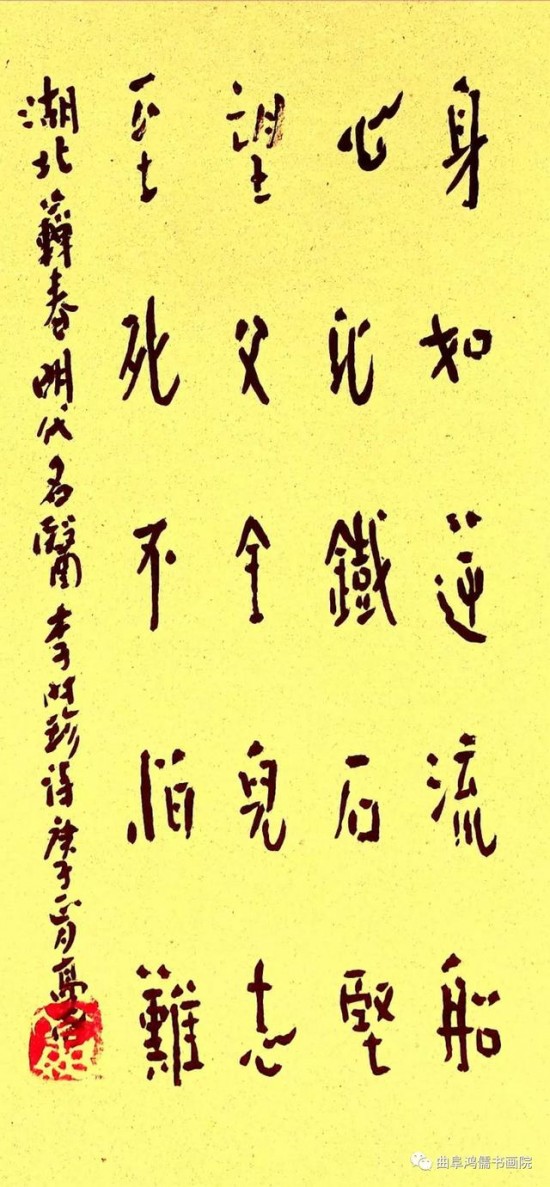 身如逆流船
心比鐵石堅
望父全兒志
至死不怕難
湖北蘄春明代名醫李时珍诗庚子
曲阜鸿儒书画院